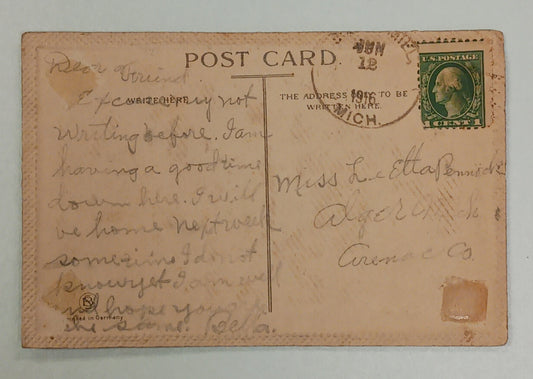 POST CARD.
Dear Friend.
WRITE HERE
Excuse my not
writing before. I am
having a good time
down here. I will
be home next week
sometime I do not
know yet I am well
and hope you
the same. Bella.
Printed in Germany
JUN
12
1916
MICH.
U.S. POSTAGE
1 CENT 1
THE ADDRESS ONLY TO BE
WRITTEN HERE.
Miss LeEtta Pennock
Alger Mich
Arenac Co.